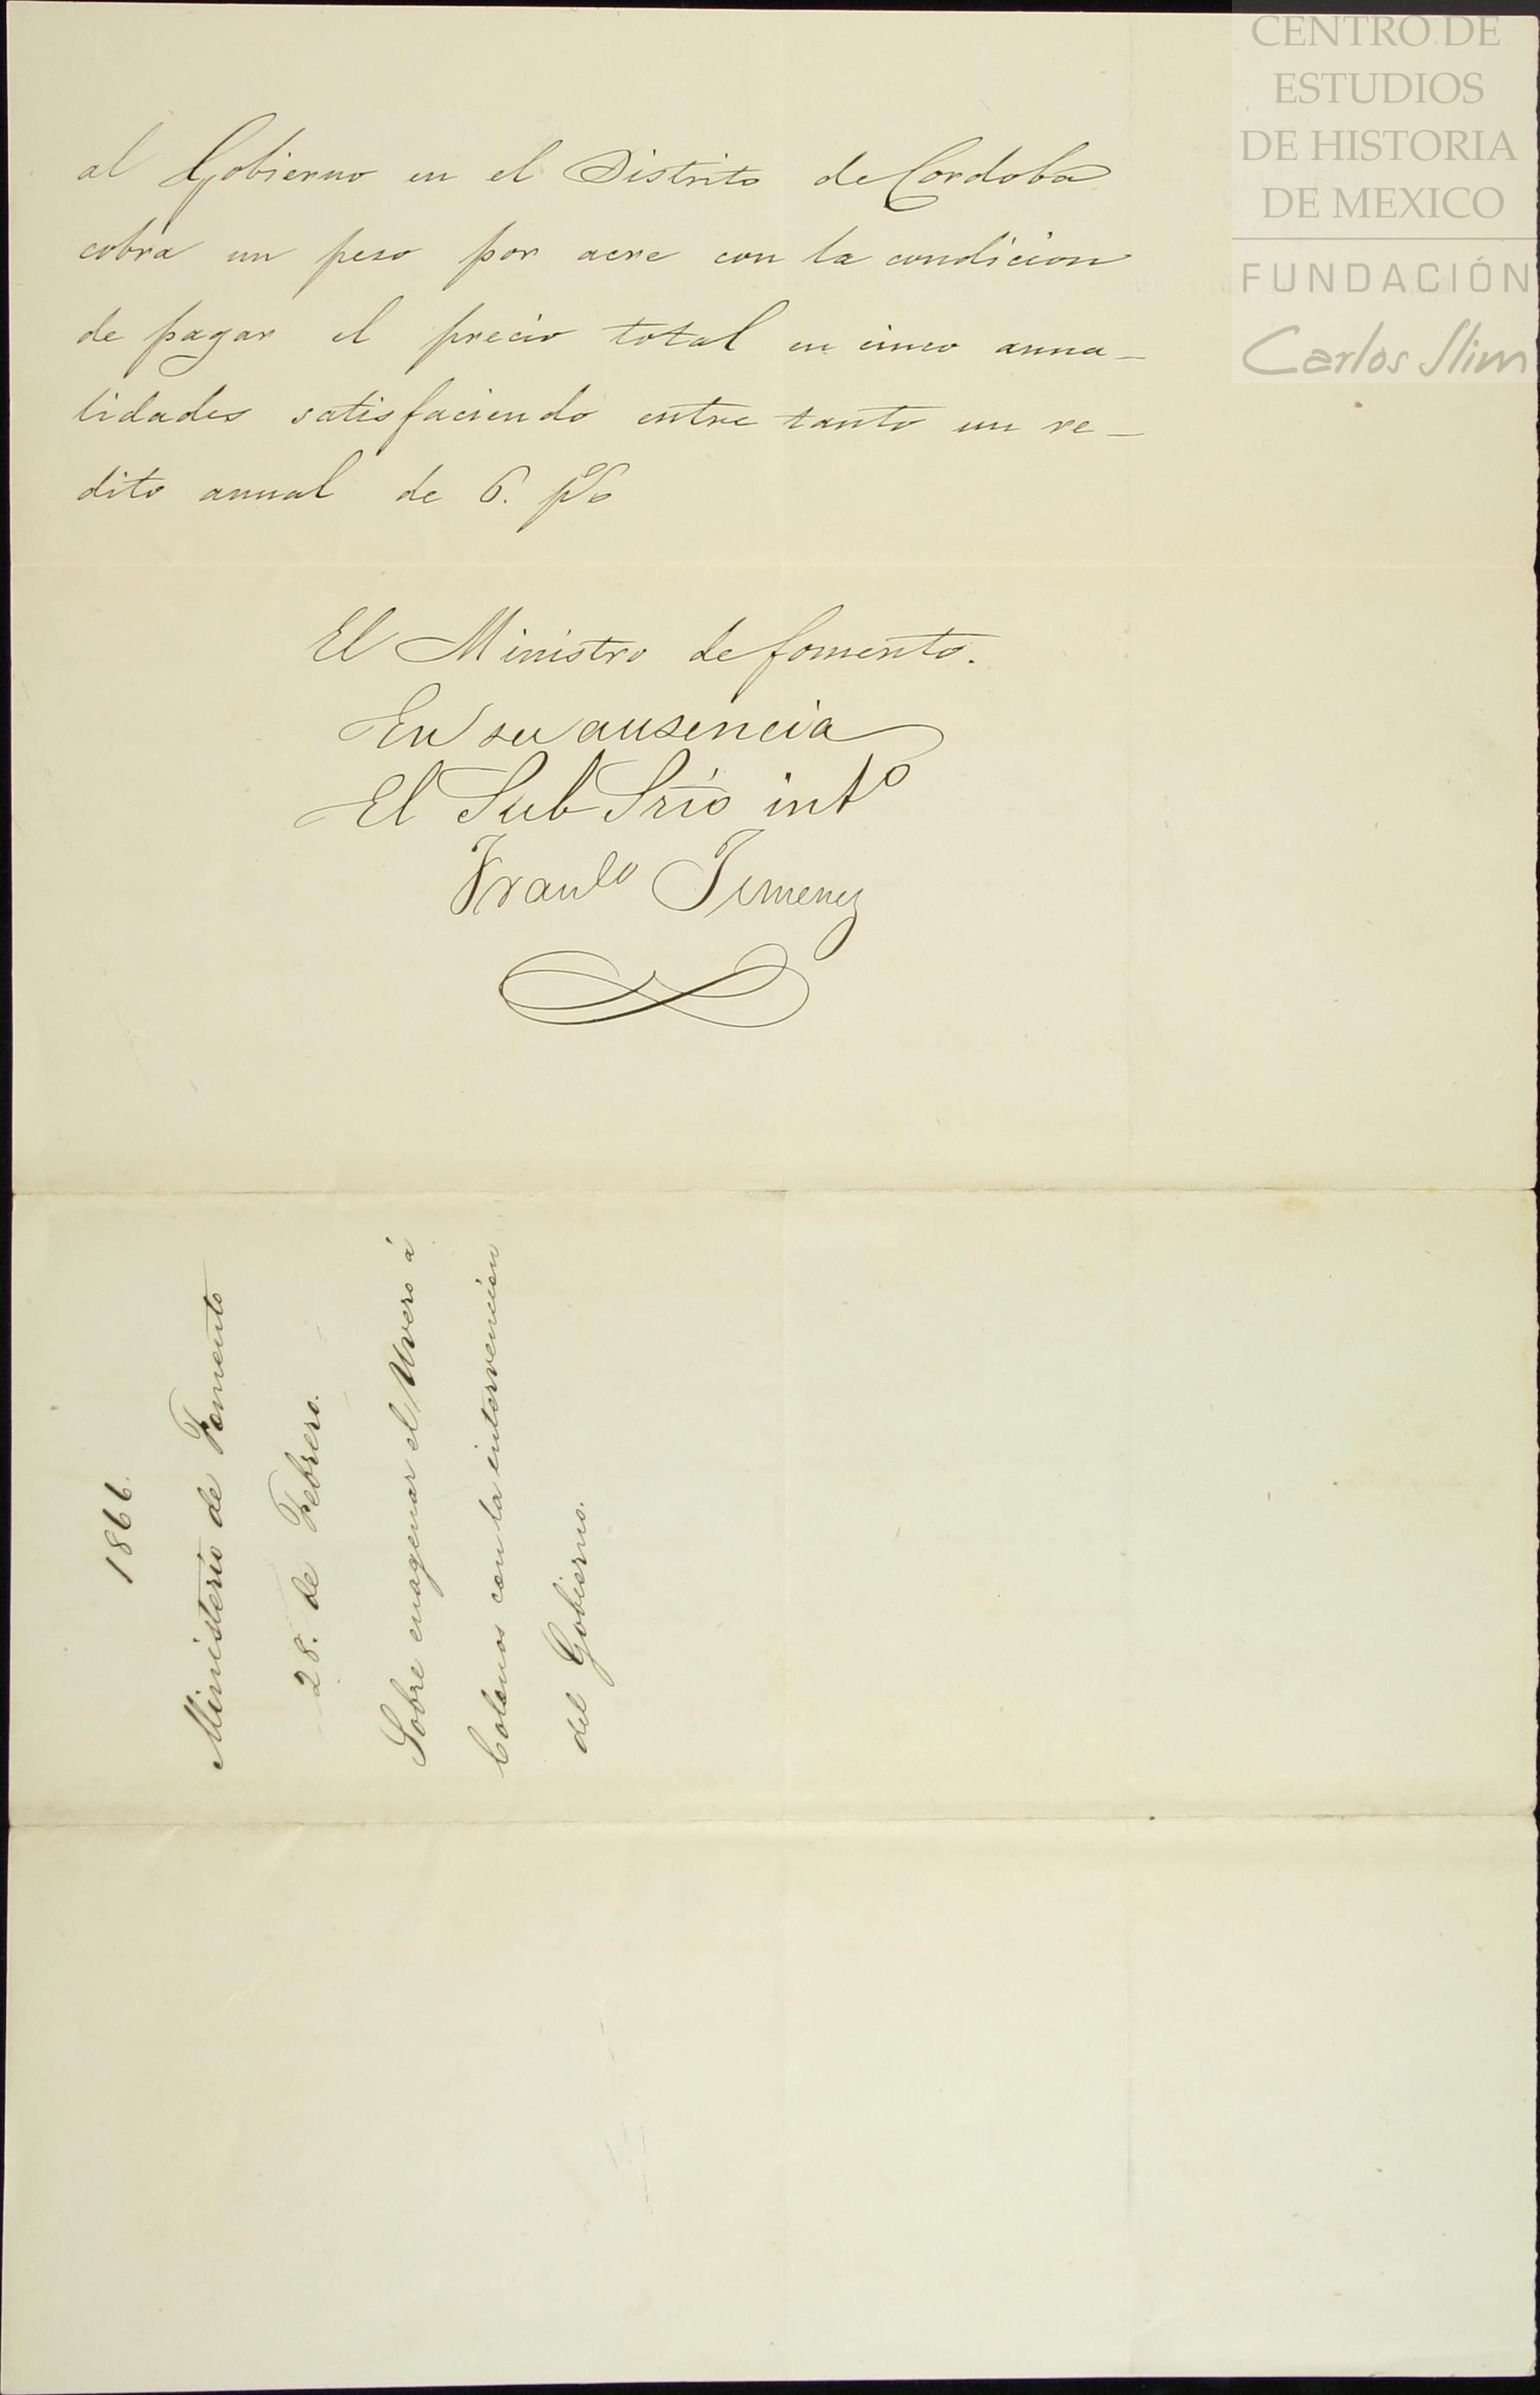 al Gobierno en el Distrito de Cordoba
cobra un peso por acre con la condicion
de pagar el precio total en cinco anua-
lidades satisfaciendo entre tanto un re-
dito anual de 6. p%
El Ministro de fomento.
En su ausencia
El Sub Srio intº
Franco Jimenez
1866.
Ministerio de Fomento
28. de Febrero.
Sobre enagenar el Uvero á
Colonos con la intervencion
del Gobierno.
CENTRO DE
ESTUDIOS
DE HISTORIA
DE MEXICO
FUNDACIÓN
Carlos Slim